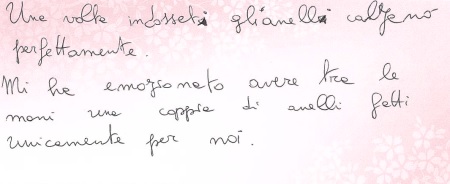 Una volta indossati gli anelli calzano
perfettamente.
Mi ha emozionato avere tra le
mani una coppia di anelli fatti
unicamente per noi.